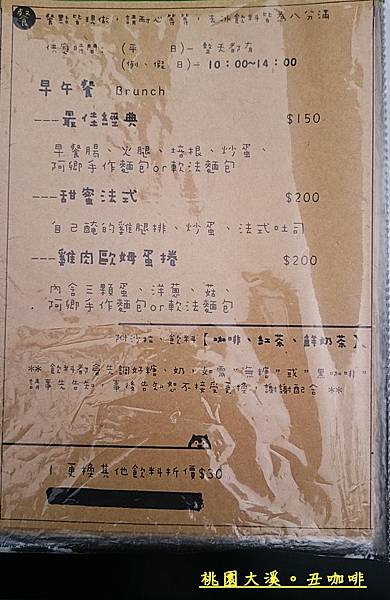 餐點皆現做，請耐心等候，去冰飲料皆為八分滿
供應時間： (平　　日)— 整天都有
(例、假　日)— 10：00~14：00
早午餐　Brunch
---最佳經典　$150
早餐腸、火腿、培根、炒蛋、
阿鄉手作麵包or軟法麵包
---甜蜜法式　$200
自己醃的雞腿排、炒蛋、法式吐司
---雞肉歐姆蛋捲　$200
內含三顆蛋、洋蔥、菇、
阿鄉手作麵包or軟法麵包
附沙拉、飲料【咖啡、紅茶、鮮奶茶】
** 飲料都會先調好糖、奶，如需"無糖"或"黑咖啡"
請事先告知，事後告知恕不接受更換，謝謝配合 **
更換其他飲料折價$30
桃園大溪。丑咖啡